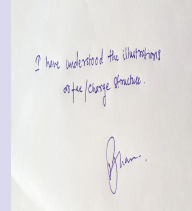 I have understood the illustrations
or fee/charge structure.